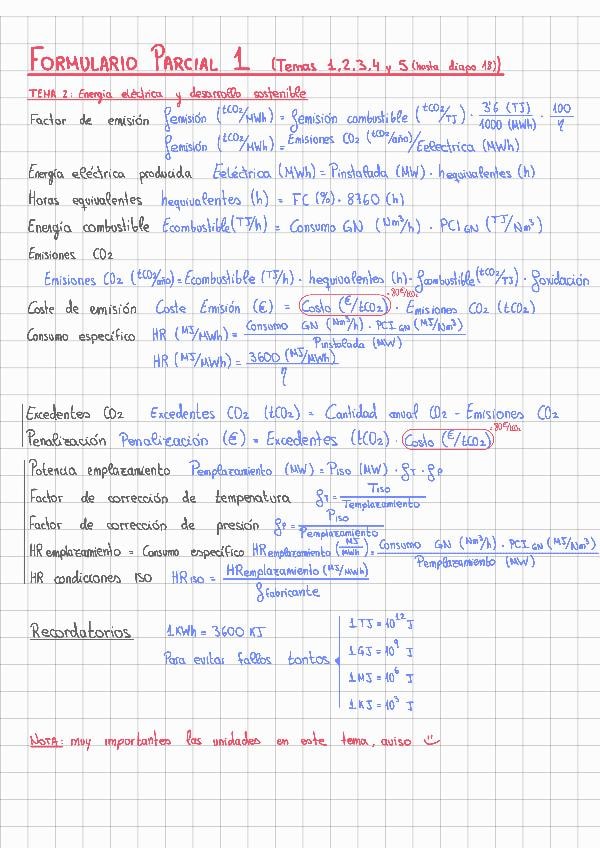 FORMULARIO PARCIAL 1 (Temas 1,2,3,4 y 5 (hasta diapo 18))
TEMA 2: Energía eléctrica y desarrollo sostenible
Factor de emisión femisión (tCO2/MWh) = femisión combustible (tCO2/TJ) · 3'6 (TJ)/1000 (MWh) · 100/η
femisión (tCO2/MWh) = Emisiones CO2 (tCO2/año)/Eelectrica (MWh)
Energía eléctrica producida Eeléctrica (MWh) = Pinstalada (MW) · hequivalentes (h)
Horas equivalentes hequivalentes (h) = FC (%) · 8760 (h)
Energía combustible Ecombustible (TJ/h) = Consumo GN (Nm³/h) · PCI GN (TJ/Nm³)
Emisiones CO2
Emisiones CO2 (tCO2/año) = Ecombustible (TJ/h) · hequivalentes (h) · fcombustible (tCO2/TJ) · foxidación
Coste de emisión Coste Emisión (€) = Costo (€/tCO2) · Emisiones CO2 (tCO2)
Consumo específico HR (MJ/MWh) = Consumo GN (Nm³/h) · PCI GN (MJ/Nm³)/Pinstalada (MW)
HR (MJ/MWh) = 3600 (MJ/MWh)/η
Excedentes CO2 Excedentes CO2 (tCO2) = Cantidad anual CO2 - Emisiones CO2
Penalización Penalización (€) = Excedentes (tCO2) · Costo (€/tCO2)
Potencia emplazamiento Pemplazamiento (MW) = Piso (MW) · fT · fP
Factor de corrección de temperatura fT = Tiso/Templazamiento
Factor de corrección de presión fP = Piso/Pemplazamiento
HR emplazamiento = Consumo específico HR emplazamiento (MJ/MWh) = Consumo GN (Nm³/h) · PCI GN (MJ/Nm³)/Pemplazamiento (MW)
HR condiciones ISO HR iso = HRemplazamiento (MJ/MWh)/ffabricante
Recordatorios 1 KWh = 3600 KJ
Para evitar fallos tontos
1 TJ = 10¹² J
1 GJ = 10⁹ J
1 MJ = 10⁶ J
1 KJ = 10³ J
NOTA: muy importantes las unidades en este tema, aviso